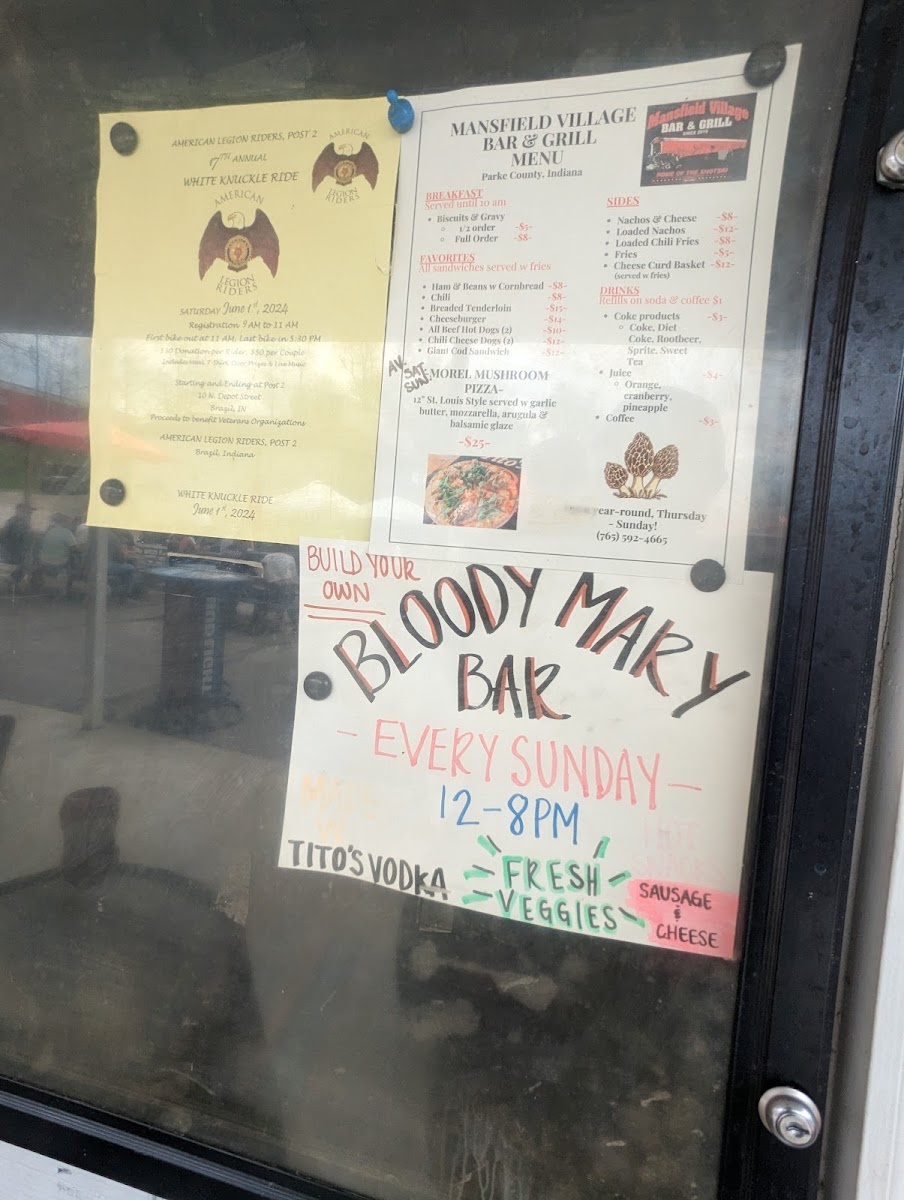 AMERICAN LEGION RIDERS, POST 2
7TH ANNUAL
WHITE KNUCKLE RIDE
AMERICAN
LEGION
RIDERS
AMERICAN
LEGION
RIDERS
SATURDAY June 1st, 2024
Registration 9 AM to 11 AM
First bike out at 11 AM, Last bike in 5:30 PM
Donation per Rider, $50 per Couple
Starting and Ending at Post 2
10 N. Depot Street
Brazil, IN
Proceeds to benefit Veterans Organizations
AMERICAN LEGION RIDERS, POST 2
Brazil, Indiana
WHITE KNUCKLE RIDE
June 1st, 2024
MANSFIELD VILLAGE
BAR & GRILL
MENU
Parke County, Indiana
Mansfield Village
BAR & GRILL
BREAKFAST
Served until 10 am
• Biscuits & Gravy
○ 1/2 order -$5-
○ Full Order -$8-
FAVORITES
All sandwiches served w fries
• Ham & Beans w Cornbread -$8-
• Chili -$8-
• Breaded Tenderloin -$15-
• Cheeseburger -$14-
• All Beef Hot Dogs (2) -$10-
• Chili Cheese Dogs (2) -$12-
• Giant Cod Sandwich -$12-
SAT
SUN
MOREL MUSHROOM
PIZZA-
12" St. Louis Style served w garlic
butter, mozzarella, arugula &
balsamic glaze
-$25-
SIDES
• Nachos & Cheese -$8-
• Loaded Nachos -$12-
• Loaded Chili Fries -$8-
• Fries -$5-
• Cheese Curd Basket -$12-
(served w fries)
DRINKS
Refills on soda & coffee $1
• Coke products -$3-
○ Coke, Diet
Coke, Rootbeer,
Sprite, Sweet
Tea
• Juice -$4-
○ Orange,
cranberry,
pineapple
• Coffee -$3-
year-round, Thursday
- Sunday!
(765) 592-4665
BUILD YOUR
OWN
BLOODY MARY
BAR
- EVERY SUNDAY -
12-8PM
TITO'S VODKA
FRESH
VEGGIES
SAUSAGE
&
CHEESE